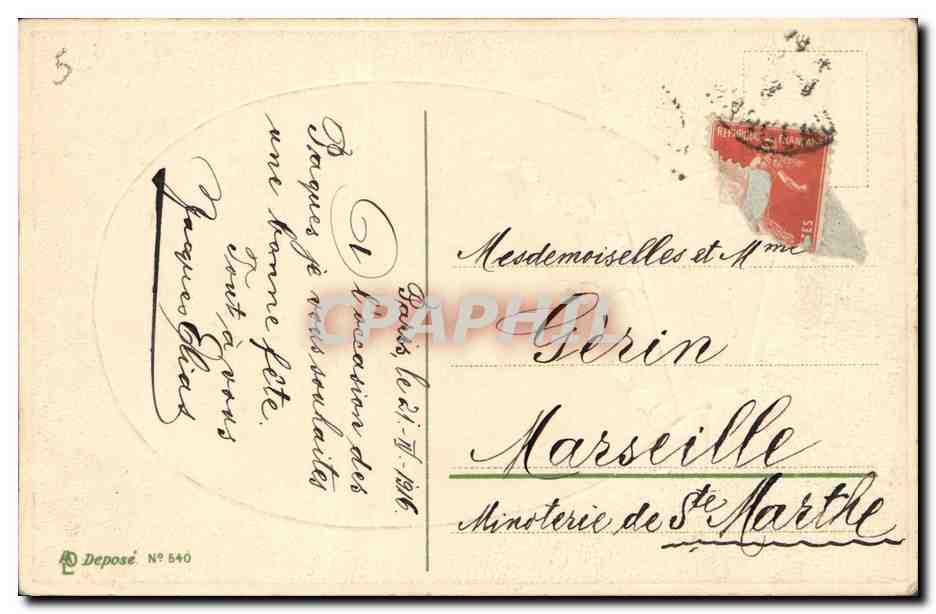 5
Paris, le 21-IV-1916
A l'occasion des
Pâques je vous souhaites
une bonne fête.
Tout à vous
Jacques Elias
REPUBLIQUE FRANÇAISE
Mesdemoiselles et Mme
Gérin
Marseille
Minoterie de Ste Marthe
CPAPHIL
Deposé Nº 540